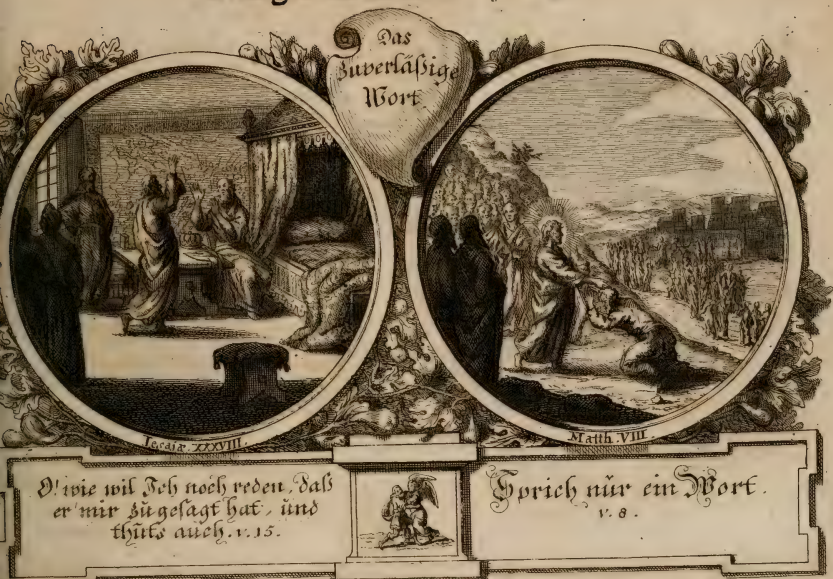 Das
Zuverläßige
Wort
Iesaiæ. XXXVIII.
Matth. VIII.
O! wie wil Ich noch reden, daß
er mir zugesagt hat, und
thuts auch. v. 15.
Sprich nur ein Wort.
v. 8.